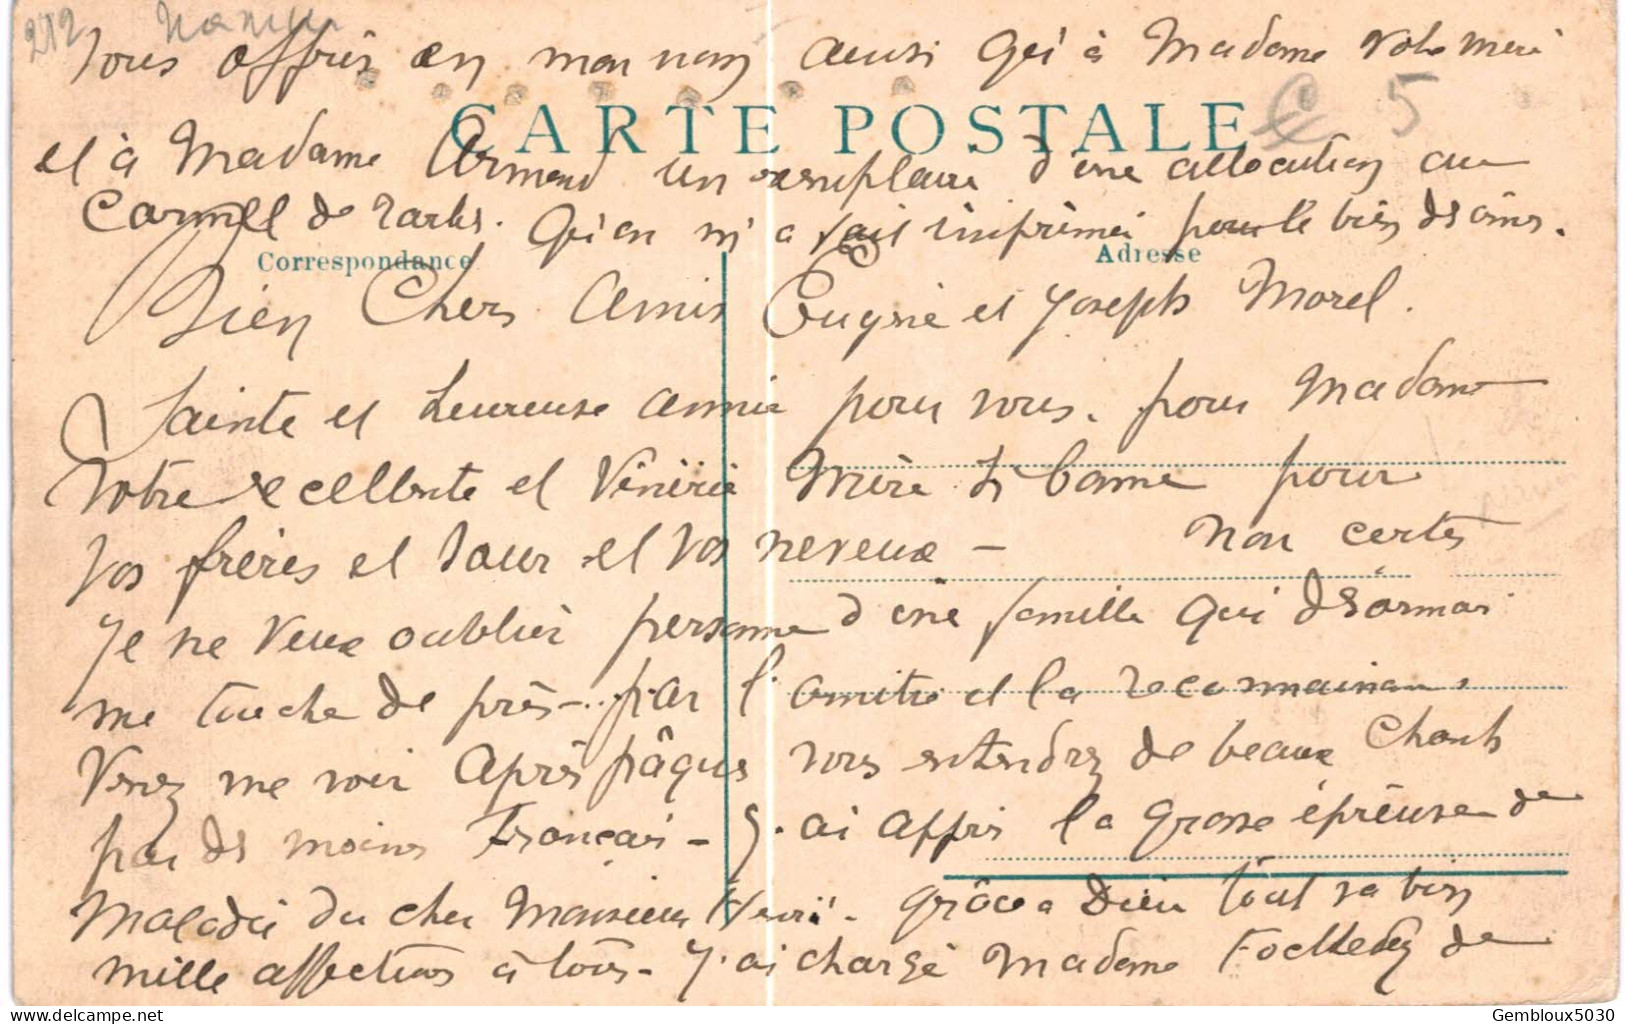 212 Namur
Vous offrir en mon nom ainsi qu'à Madame votre mère
C 5
CARTE POSTALE
et à Madame Armand un exemplaire d'une allocution au
Carmel de Tarbes. Qu'on m'a fait imprimer pour le bien des âmes.
Correspondance
Adresse
Bien Chers Amis Eugène et Joseph Morel.
Sainte et heureuse année pour vous. pour Madame
Votre excellente et Vénérée Mère pour
Vos frères et sœur et Vos neveux – Non certes
Je ne veux oublier personne d'une famille qui désormais
me touche de près – par l'amitié et la reconnaissance
Venez me voir Après pâques vous entendrez de beaux Chants
par des moines Français – J'ai appris la grosse épreuve de
Maladie du cher Monsieur Henri. grâce à Dieu tout va bien
mille affections à tous – J'ai chargé Madame de
Gembloux5030